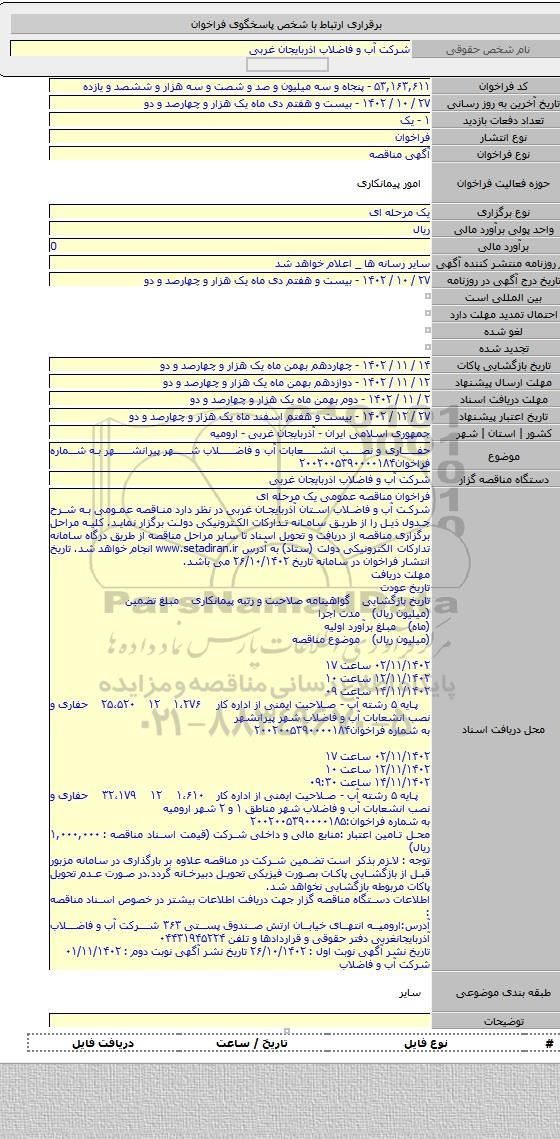 برقراری ارتباط با شخص پاسخگوی فراخوان
نام شخص حقوقی شرکت آب و فاضلاب اذربایجان غربی
کد فراخوان ۵۳,۱۶۳,۶۱۱ - پنجاه و سه میلیون و صد و شصت و سه هزار و ششصد و یازده
تاریخ آخرین به روز رسانی ۲۷ / ۱۰ / ۱۴۰۲ - بیست و هفتم دی ماه یک هزار و چهارصد و دو
تعداد دفعات بازدید ۱ - یک
نوع انتشار فراخوان
نوع فراخوان آگهی مناقصه
حوزه فعالیت فراخوان امور پیمانکاری
نوع برگزاری یک مرحله ای
واحد پولی برآورد مالی ریال
برآورد مالی 0
روزنامه منتشر کننده آگهی سایر رسانه ها _ اعلام خواهد شد
تاریخ درج آگهی در روزنامه ۲۷ / ۱۰ / ۱۴۰۲ - بیست و هفتم دی ماه یک هزار و چهارصد و دو
بین المللی است
احتمال تمدید مهلت دارد
لغو شده
تجدید شده
تاریخ بازگشایی پاکات ۱۴ / ۱۱ / ۱۴۰۲ - چهاردهم بهمن ماه یک هزار و چهارصد و دو
مهلت ارسال پیشنهاد ۱۲ / ۱۱ / ۱۴۰۲ - دوازدهم بهمن ماه یک هزار و چهارصد و دو
مهلت دریافت اسناد ۲ / ۱۱ / ۱۴۰۲ - دوم بهمن ماه یک هزار و چهارصد و دو
تاریخ اعتبار پیشنهاد ۲۷ / ۱۲ / ۱۴۰۲ - بیست و هفتم اسفند ماه یک هزار و چهارصد و دو
کشور | استان | شهر جمهوری اسلامی ایران - آذربایجان غربی - ارومیه
موضوع حفاری و نصب انشعابات آب و فاضلاب شهر پیرانشهر به شماره
فراخوان۲۰۰۲۰۰۵۳۹۰۰۰۰۱۸۴
دستگاه مناقصه گزار شرکت آب و فاضلاب اذربایجان غربی
محل دریافت اسناد
فراخوان مناقصه عمومی یک مرحله ای
شرکت آب و فاضلاب استان آذربایجان غربی در نظر دارد مناقصه عمومی به شرح
جدول ذیل را از طریق سامانه تدارکات الکترونیکی دولت برگزار نماید. کلیه مراحل
برگزاری مناقصه از دریافت و تحویل اسناد تا سایر مراحل مناقصه از طریق درگاه سامانه
تدارکات الکترونیکی دولت (ستاد) به آدرس www.setadiran.ir انجام خواهد شد. تاریخ
انتشار فراخوان در سامانه تاریخ ۲۶/۱۰/۱۴۰۲ می باشد.
مهلت دریافت
تاریخ عودت
تاریخ بازگشایی گواهینامه صلاحیت و رتبه پیمانکاری مبلغ تضمین
(میلیون ریال) مدت اجرا
(ماه) مبلغ برآورد اولیه
(میلیون ریال) موضوع مناقصه
۰۲/۱۱/۱۴۰۲ ساعت ۱۷
۱۲/۱۱/۱۴۰۲ ساعت ۱۰
۱۴/۱۱/۱۴۰۲ ساعت ۰۹
پایه ۵ رشته آب - صلاحیت ایمنی از اداره کار ۱،۲۷۶ ۱۲ ۲۵،۵۲۰ حفاری و
نصب انشعابات آب و فاضلاب شهر پیرانشهر
به شماره فراخوان۲۰۰۲۰۰۵۳۹۰۰۰۰۱۸۴
۰۲/۱۱/۱۴۰۲ ساعت ۱۷
۱۲/۱۱/۱۴۰۲ ساعت ۱۰
۱۴/۱۱/۱۴۰۲ ساعت ۰۹:۳۰
پایه ۵ رشته آب - صلاحیت ایمنی از اداره کار ۱،۶۱۰ ۱۲ ۳۲،۱۷۹ حفاری و
نصب انشعابات آب و فاضلاب شهر مناطق ۱ و ۲ شهر ارومیه
به شماره فراخوان:۲۰۰۲۰۰۵۳۹۰۰۰۰۱۸۵
محل تامین اعتبار :منابع مالی و داخلی شرکت (قیمت اسناد مناقصه : ۱,۰۰۰,۰۰۰
ریال)
توجه : لازم بذکر است تضمین شرکت در مناقصه علاوه بر بارگذاری در سامانه مزبور
قبل از بازگشایی پاکات بصورت فیزیکی تحویل دبیرخانه گردد.در صورت عدم تحویل
پاکات مربوطه بازگشایی نخواهد شد.
اطلاعات دستگاه مناقصه گزار جهت دریافت اطلاعات بیشتر در خصوص اسناد مناقصه
:
آدرس:ارومیه انتهای خیابان ارتش صندوق پستی ۳۶۳ شرکت آب و فاضلاب
آذربایجانغربی دفتر حقوقی و قراردادها و تلفن ۰۴۴۳۱۹۴۵۲۲۴
تاریخ نشر آگهی نوبت اول : ۲۶/۱۰/۱۴۰۲ تاریخ نشر آگهی نوبت دوم : ۰۱/۱۱/۱۴۰۲
شرکت آب و فاضلاب
طبقه بندی موضوعی سایر
توضیحات
# نوع فایل تاریخ / ساعت دریافت فایل
پایگاه اطلاع رسانی مناقصه و مزایده
۰۲۱-۸۸۳۴۹۶۷۰-۵